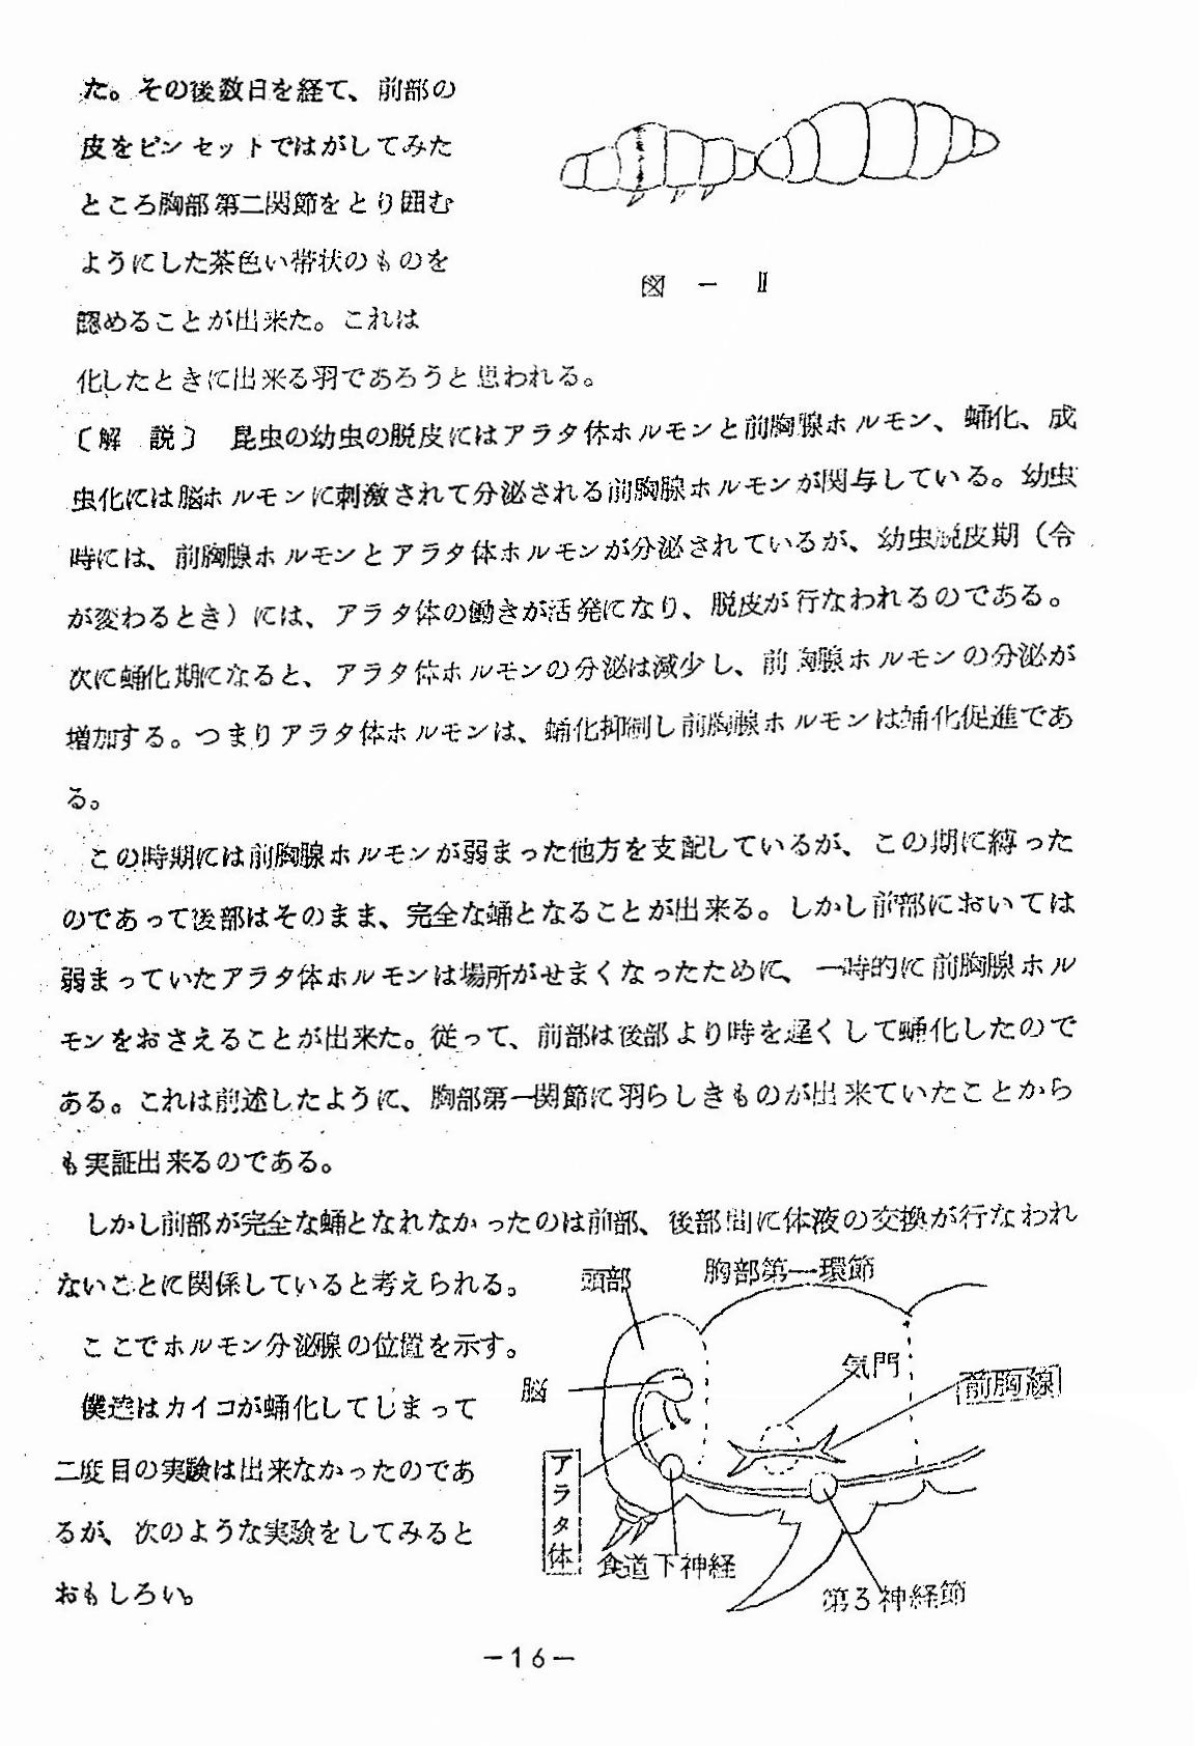 た。その後数日を経て、前部の
皮をピンセットではがしてみた
ところ胸部第二関節をとり囲む
ようにした茶色い帯状のものを
認めることが出来た。これは
化したときに出来る羽であろうと思われる。
図－Ⅱ
〔解 説〕 昆虫の幼虫の脱皮にはアラタ体ホルモンと前胸腺ホルモン、蛹化、成
虫化には脳ホルモンに刺激されて分泌される前胸腺ホルモンが関与している。幼虫
時には、前胸腺ホルモンとアラタ体ホルモンが分泌されているが、幼虫脱皮期（令
が変わるとき）には、アラタ体の働きが活発になり、脱皮が行なわれるのである。
次に蛹化期になると、アラタ体ホルモンの分泌は減少し、前胸腺ホルモンの分泌が
増加する。つまりアラタ体ホルモンは、蛹化抑制し前胸腺ホルモンは蛹化促進であ
る。
この時期には前胸腺ホルモンが弱まった他方を支配しているが、この期に縛った
のであって後部はそのまま、完全な蛹となることが出来る。しかし前部においては
弱まっていたアラタ体ホルモンは場所がせまくなったために、一時的に前胸腺ホル
モンをおさえることが出来た。従って、前部は後部より時を遅くして蛹化したので
ある。これは前述したように、胸部第一関節に羽らしきものが出来ていたことから
も実証出来るのである。
しかし前部が完全な蛹となれなかったのは前部、後部間に体液の交換が行なわれ
ないことに関係していると考えられる。
ここでホルモン分泌腺の位置を示す。
僕達はカイコが蛹化してしまって
二度目の実験は出来なかったのであ
るが、次のような実験をしてみると
おもしろい。
頭部
胸部第一環節
気門
前胸線
脳
アラタ体
食道下神経
第3神経節
－16－